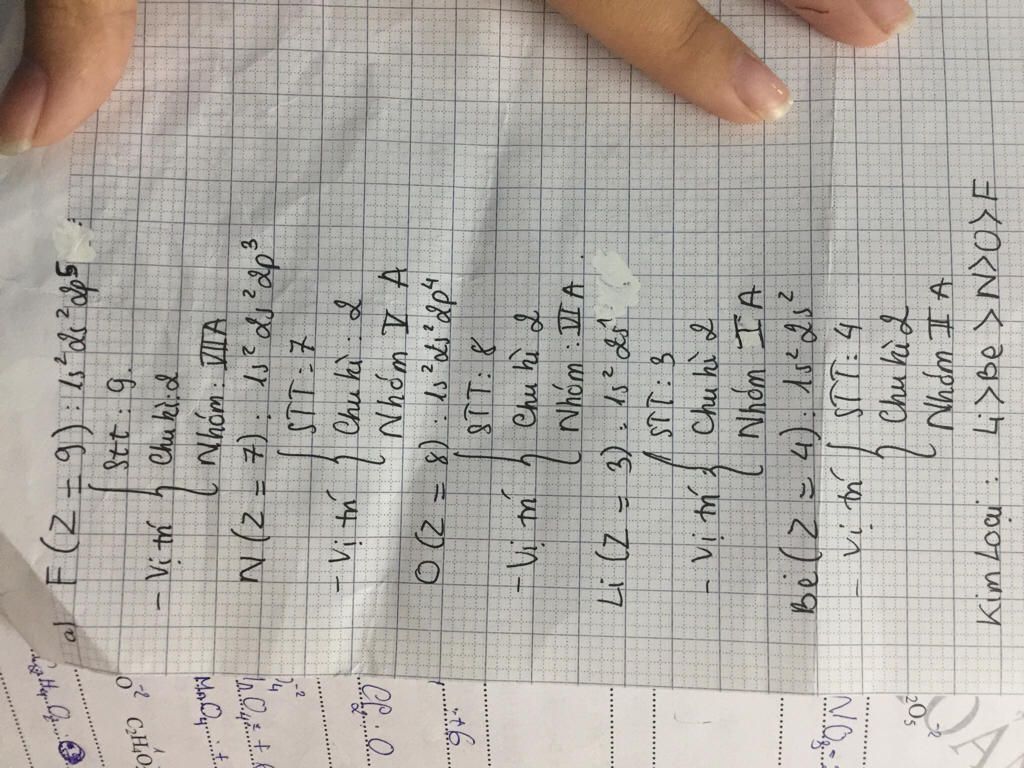 a) F (Z = 9) : 1s² 2s² 2p⁵
Stt : 9.
- Vị trí { Chu kì: 2
Nhóm : VIIA
N (Z = 7) : 1s² 2s² 2p³
STT : 7
- Vị trí { Chu kì : 2
Nhóm V A
O (Z = 8) : 1s² 2s² 2p⁴
STT : 8
- Vị trí { Chu kì 2
Nhóm : VIA
Li (Z = 3) : 1s² 2s¹
STT : 3
- Vị trí { Chu kì 2
Nhóm I A
Be (Z = 4) : 1s² 2s²
- Vị trí { STT : 4
Chu kì 2
Nhóm II A
Kim Loại : Li > Be > N > O > F
MnO₄